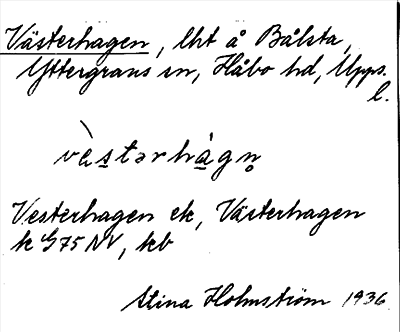 Västerhagen, lht å Bålsta,
Yttergrans sn, Håbo hd, Upps.
l.
vèstərhàgn̥
Vesterhagen ek, Västerhagen
k G75 NV, kb
Stina Holmström 1936